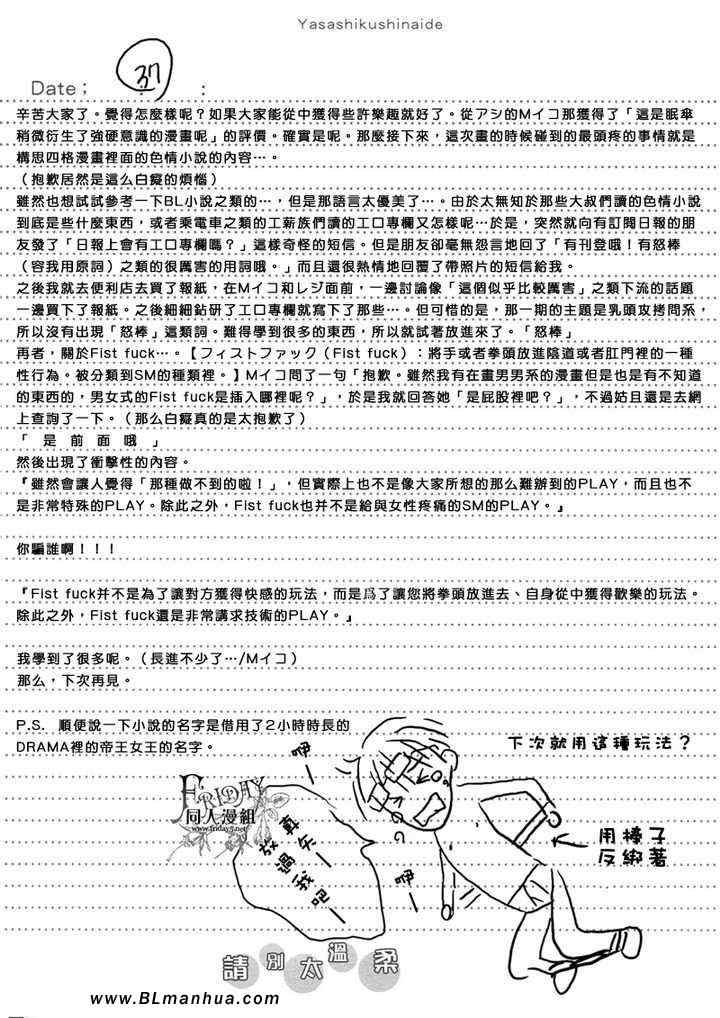 Yasashikushinaide
Date； 37 ：
辛苦大家了。覺得怎麼樣呢？如果大家能從中獲得些許樂趣就好了。從アシのMイコ那獲得了「這是眠傘
稍微衍生了強硬意識的漫畫呢」的評價。確實是呢。那麼接下來，這次畫的時候碰到的最頭疼的事情就是
構思四格漫畫裡面的色情小說的內容…。
（抱歉居然是這么白癡的煩惱）
雖然也想試試參考一下BL小說之類的…，但是那語言太優美了…。由於太無知於那些大叔們讀的色情小說
到底是些什麼東西，或者乘電車之類的工薪族們讀的工口專欄又怎樣呢…於是，突然就向有訂閱日報的朋
友發了「日報上會有工口專欄嗎？」這樣奇怪的短信。但是朋友卻毫無怨言地回了「有刊登哦！有怒棒
（容我用原詞）之類的很厲害的用詞哦。」而且還很熱情地回覆了帶照片的短信給我。
之後我就去便利店去買了報紙，在Mイコ和レジ面前，一邊討論像「這個似乎比較厲害」之類下流的話題
一邊買下了報紙。之後細細鉆研了工口專欄就寫下了那些…。但可惜的是，那一期的主題是乳頭攻拷問系，
所以沒有出現「怒棒」這類詞。難得學到很多的東西，所以就試著放進來了。「怒棒」
再者，關於Fist fuck…。【フィストファック（Fist fuck）：將手或者拳頭放進陰道或者肛門裡的一種
性行為。被分類到SM的種類裡。】Mイコ問了一句「抱歉。雖然我有在畫男男系的漫畫但是也是有不知道
的東西的，男女式的Fist fuck是插入哪裡呢？」，於是我就回答她「是屁股裡吧？」，不過姑且還是去網
上查詢了一下。（那么白癡真的是太抱歉了）
「 是 前 面 哦 」
然後出現了衝擊性的內容。
『雖然會讓人覺得「那種做不到的啦！」，但實際上也不是像大家所想的那么難辦到的PLAY，而且也不
是非常特殊的PLAY。除此之外，Fist fuck也并不是給與女性疼痛的SM的PLAY。』
你騙誰啊！！！
『Fist fuck并不是為了讓對方獲得快感的玩法，而是爲了讓您將拳頭放進去、自身從中獲得歡樂的玩法。
除此之外，Fist fuck還是非常講求技術的PLAY。』
我學到了很多呢。（長進不少了…/Mイコ）
那么，下次再見。
P.S. 順便說一下小說的名字是借用了2小時時長的
DRAMA裡的帝王女王的名字。
下次就用這種玩法？
咿—
FRIDAY
同人漫組
www.friday5.net
矢—
放過我吧—
咿—
用棒子
反綁著
請別太溫柔
www.BLmanhua.com